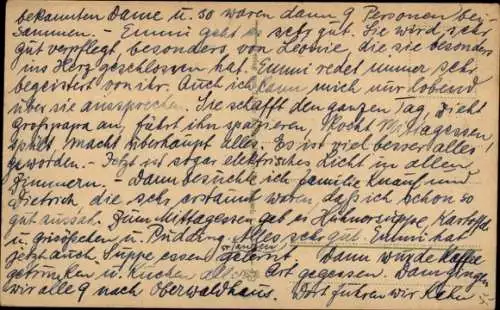 bekannten Dame u. so waren dann 9 Personen bei-
sammen. - Emmi geht es sehr gut. Sie wird sehr
gut verpflegt, besonders von Leonie, die sie besonders
ins Herz geschlossen hat. Emmi redet immer sehr
begeistert von ihr. Auch ich kann mich nur lobend
über sie aussprechen. Sie schafft den ganzen Tag, zieht
Grosspapa an, führt ihn spazieren, kocht Mittagessen,
spült, macht überhaupt alles. Es ist viel besser alles
geworden. - Jetzt ist sogar elektrisches Licht in allen
Zimmern. - Dann besuchte ich Familie Knauf und
Dietrich, die sehr erstaunt waren, daß ich schon so
gut aussah. Zum Mittagessen gab es Hühnersuppe, Kartoffel
u. u. Pudding. Alles sehr gut. Emmi hat
jetzt auch Suppe essen gelernt. Dann wurde Kaffee
getrunken u. Kuchen aller Art gegessen. Dann gingen
wir alle 9 nach Oberwaldhaus. Dort fuhren wir Kahn
5,-